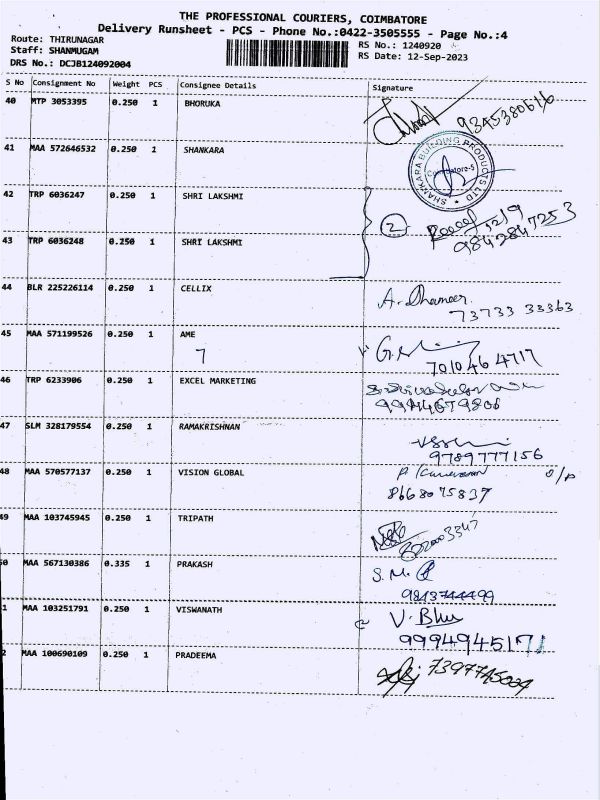 THE PROFESSIONAL COURIERS, COIMBATORE
Delivery Runsheet - PCS - Phone No.:0422-3505555 - Page No.:4
Route: THIRUNAGAR
Staff: SHANMUGAM
DRS No.: DCJB124092004
RS No.: 1240920
RS Date: 12-Sep-2023
S No Consignment No Weight PCS Consignee Details Signature
40 MTP 3053395 0.250 1 BHORUKA
9345380616
41 MAA 572646532 0.250 1 SHANKARA
SHANKARA BUILDING PRODUCTS LTD
42 TRP 6036247 0.250 1 SHRI LAKSHMI
2
9842847253
43 TRP 6036248 0.250 1 SHRI LAKSHMI
44 BLR 225226114 0.250 1 CELLIX
A. Dhameer
73733 33363
45 MAA 571199526 0.250 1 AME
7
7010464717
46 TRP 6233906 0.250 1 EXCEL MARKETING
9994679806
47 SLM 328179554 0.250 1 RAMAKRISHNAN
9789777156
48 MAA 570577137 0.250 1 VISION GLOBAL
8668075837
49 MAA 103745945 0.250 1 TRIPATH
50 MAA 567130386 0.335 1 PRAKASH
S. M.
9843744499
1 MAA 103251791 0.250 1 VISWANATH
V. Bhu
9994945171
2 MAA 100690109 0.250 1 PRADEEMA
7397745004